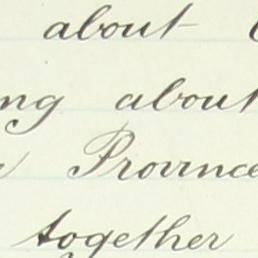 about
ng about
Province
together